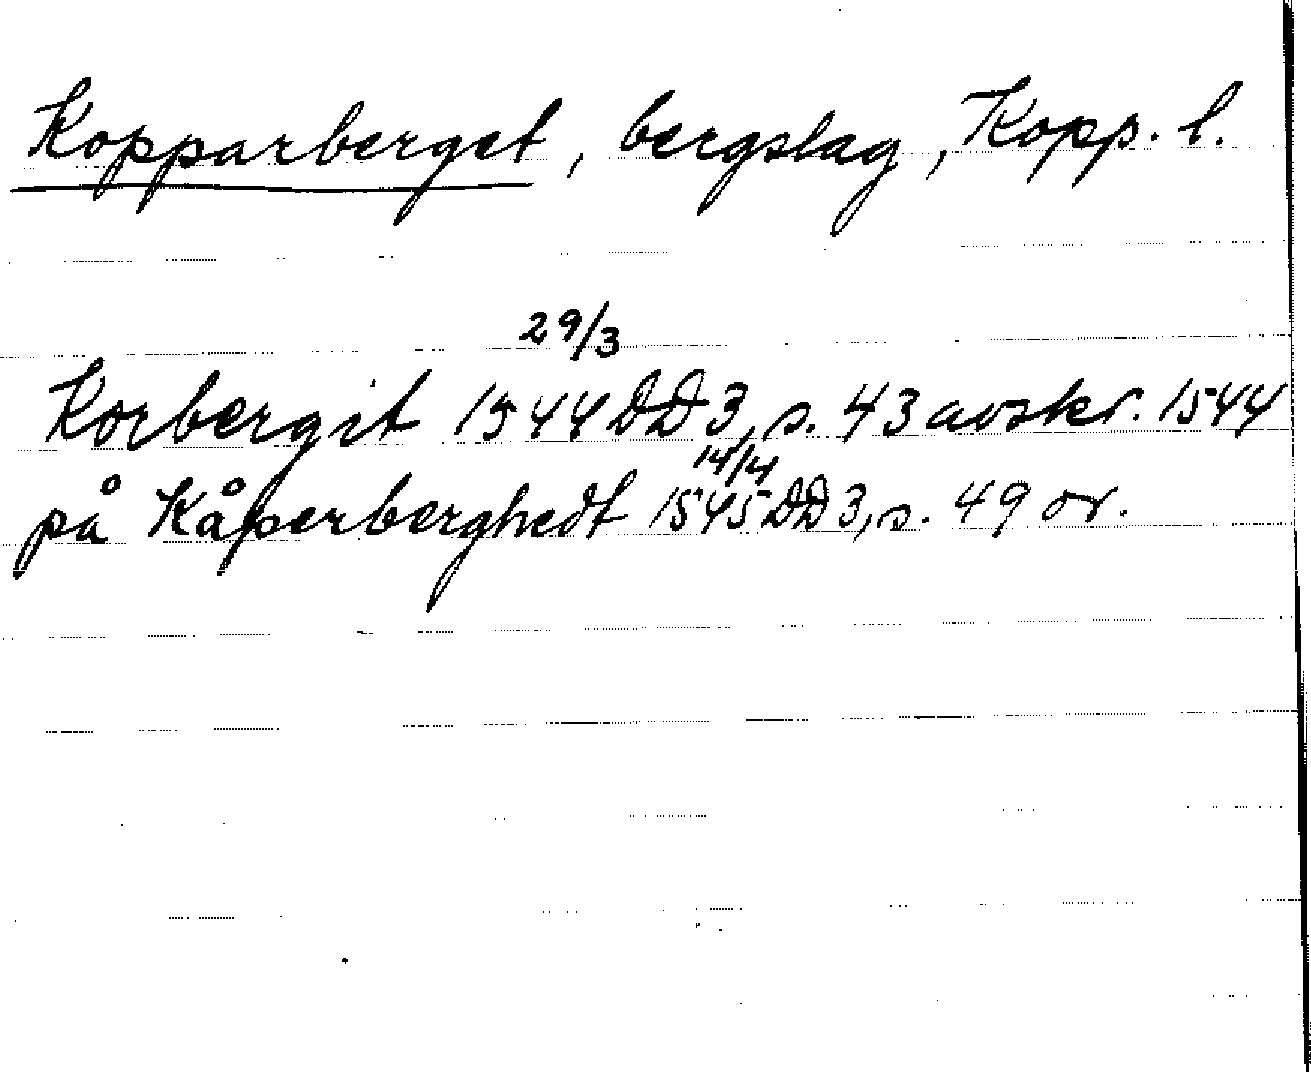 Kopparberget, bergslag, Kopp. l.
29/3
Korbergit 1544 DD 3, s. 43 avskr. 1544
14/4
på Kåperberghedt 1545 DD 3, s. 49 or.